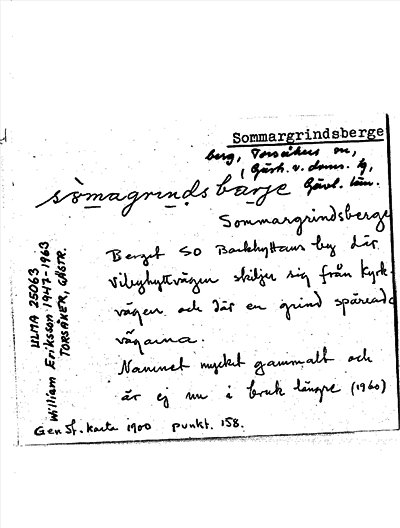 Sommargrindsberge
berg, Torsåkers sn,
Gästr. v. doms. tg,
Gävl. län.
sòmagrindsbarje
Sommargrindsberge
Berget SO Backhyttans by där
Vibyhyttvägen skiljer sig från Kyrk-
vägen och där en grind spärrade
vägarna.
Namnet mycket gammalt och
är ej nu i bruk längre (1960)
Gen St. karta 1900 punkt. 158.
ULMA 25063
William Eriksson 1947-1963
TORSÅKER, GÄSTR.